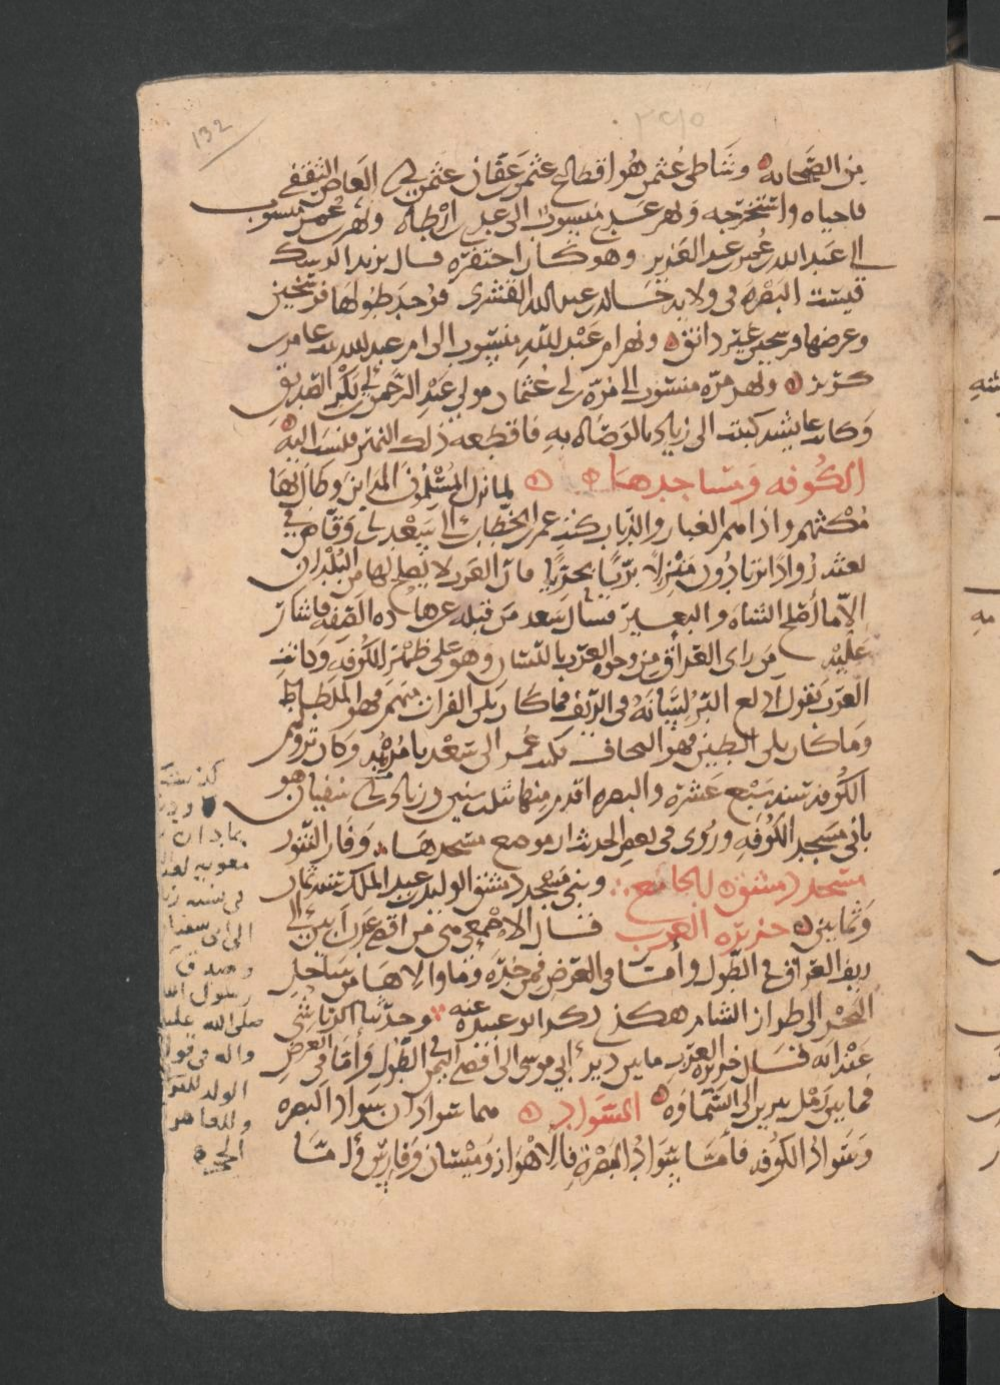 132
من الصحابه وشاطى عثمن هو اقطاع عثمن بن عفان عثمن بن ابى العاص الثقفى
فاحياه واستخرجه ونهر عدى منسوب الى عدى بن ارطاه ونهر عمر منسوب
الى عبد الله بن عمر بن عبد العزيز وهو كان احتفره قال يزيد الرشك
قيست البصره فى ولايه خالد بن عبد الله القسرى فوجد طولها فرسخين
وعرضها فرسخين غير دانق ونهر ام عبد الله منسوب الى ام عبد الله بن عامر بن
كريز ونهر مره منسوب الى مره بن ابى عثمان مولى عبد الرحمن بن ابى بكر الصديق
وكانت عايشه كتبت الى زياد بالوصاه به فاقطعه ذلك النهر فنسب اليه
الكوفه ومساجدها لما نزل المسلمون المداين وطال بها
مكثهم واذاهم الغبار والذباب كتب عمر بن الخطاب الى سعد بن ابى وقاص فى
بعثه روادا يرتادون منزلا بريا بحريا فان العرب لا يصلحها من البلدان
الا ما اصلح الشاه والبعير فسال سعد من قبله عن هذه الصفه فاشار
عليه من راى العراق من وجوه العرب باللسان وهو على ظهر الكوفه وكانت
العرب تقول ادلع البر لسانه فى الريف فما كان يلى الفرات منهم فهو الملطاط
وما كان يلى الطين فهو النجاف فكتب عمر الى سعد يامرهم به وكان نزولهم
الكوفه سنه سبع عشره والبصره اقدم منها بثلث سنين وزياد بن ابى سفيان هو
بانى مسجد الكوفه وروى فى بعض الحديث ان موضع مسجدها وفار التنور
مسجد دمشق الجامع وبنى مسجد دمشق الوليد بن عبد الملك سنه ثمان
وثمانين جزيره العرب قال الاصمعى هى من اقصى عدن ابين الى
ريف العراق فى الطول واما فى العرض فمن جده وما والاها من ساحل
البحر الى طوار الشام هكذى ذكر ابو عبيد عنه وحدثنا الرياشى
عنه انه قال جزيره العرب ما بين دير ابى موسى الى اقصى اليمن فى الطول واما فى العرض
فما بين رمل يبرين الى السماوه السواد هما سوادان سواد البصره
وسواد الكوفه فاما سواد البصره فالاهواز وميسان وفارس واما
معويه
زياد
الى ابى سفيان
رسول الله
صلى الله عليه
واله فى قوله
الولد للفراش
وللعاهر
الحجر